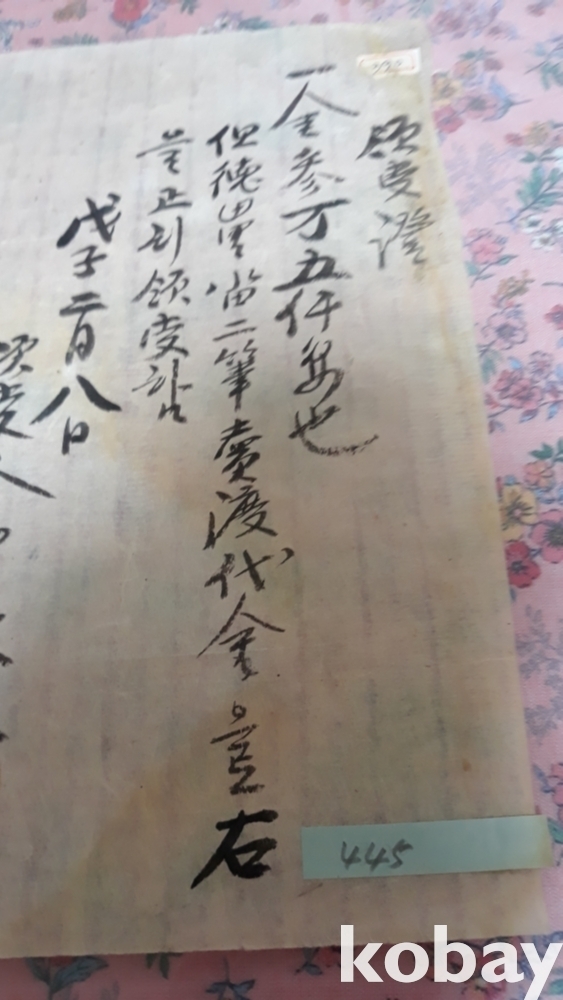 領受證
一金參万五仟也
但德里畓二筆賣渡代金으로右
를正히領受함
戊子二月八日
領受人
445
kobay